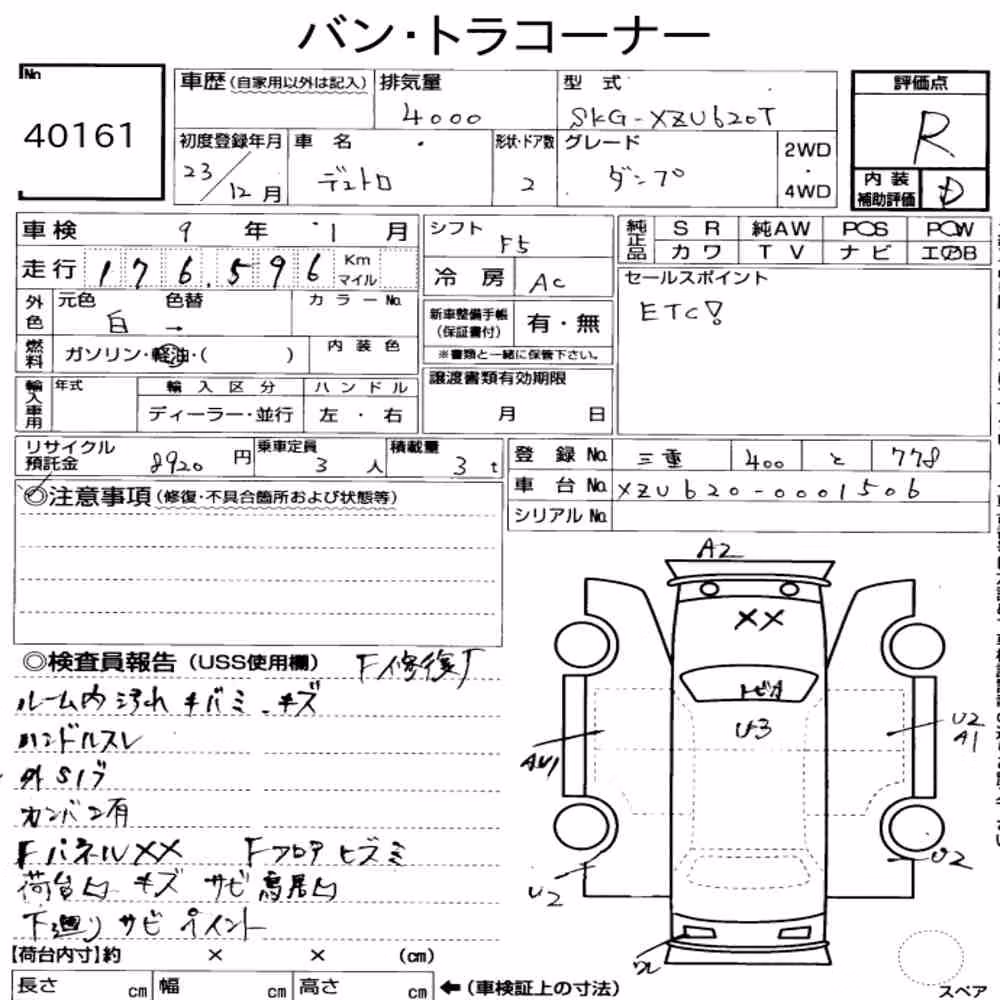 バン・トラコーナー
No
40161
車歴 (自家用以外は記入)
排気量
4000
型 式
SKG-XZU620T
評価点
R
初度登録年月
23/12月
車 名
デュトロ
形状・ドア数
2
グレード
ダンプ
2WD
・
4WD
内 装
補助評価
D
車検 9 年 1 月
走行 176.596 Km マイル
シフト
F5
冷 房
AC
純正品
S R 純AW PCS PCW
カ ワ T V ナ ビ エOB
セールスポイント
ETC!
外色
元色
白 →
色替
カ ラ ー No.
新車整備手帳
(保証書付)
有・無
※書類と一緒に保管下さい。
燃料
ガソリン・軽油・( )
内 装 色
輸入車用
年式
輸 入 区 分
ディーラー・並行
ハ ン ド ル
左 ・ 右
譲渡書類有効期限
月 日
リサイクル
預託金
8920 円
乗車定員
3 人
積載量
3 t
登 録 No. 三重 400 と 778
車 台 No. XZU620-0001506
シリアル No.
◎注意事項 (修復・不具合箇所および状態等)
◎検査員報告 (USS使用欄) F修復歴
ルーム内 汚れ キバミ キズ
ハンドルスレ
外S1ブ
カンバン有
FパネルXX Fフロア ヒズミ
荷台凹 キズ サビ 鳥居凹
下廻り サビ ペイント
A2
XX
トビ
U3
AU1
U2
A1
U2
U2
【荷台内寸】約 × × (cm)
長さ cm 幅 cm 高さ cm ←(車検証上の寸法)
スペア